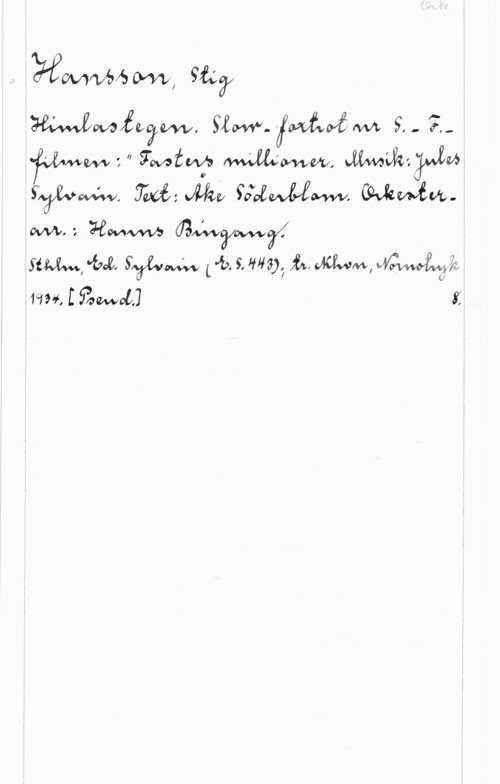 Ork
Hansson, Stig
Himlastegen. Slow-foxtrot ur S.-F.-
filmen: "Fasters millioner. Musik: Jules
Sylvain. Text: Åke Söderblom. Orkester-
arr.: Hanns Bingang/
Sthlm, Ed. Sylvain (E.S. 443); tr. Khvn, Nornotryk
1934. [Pseud.] 8.